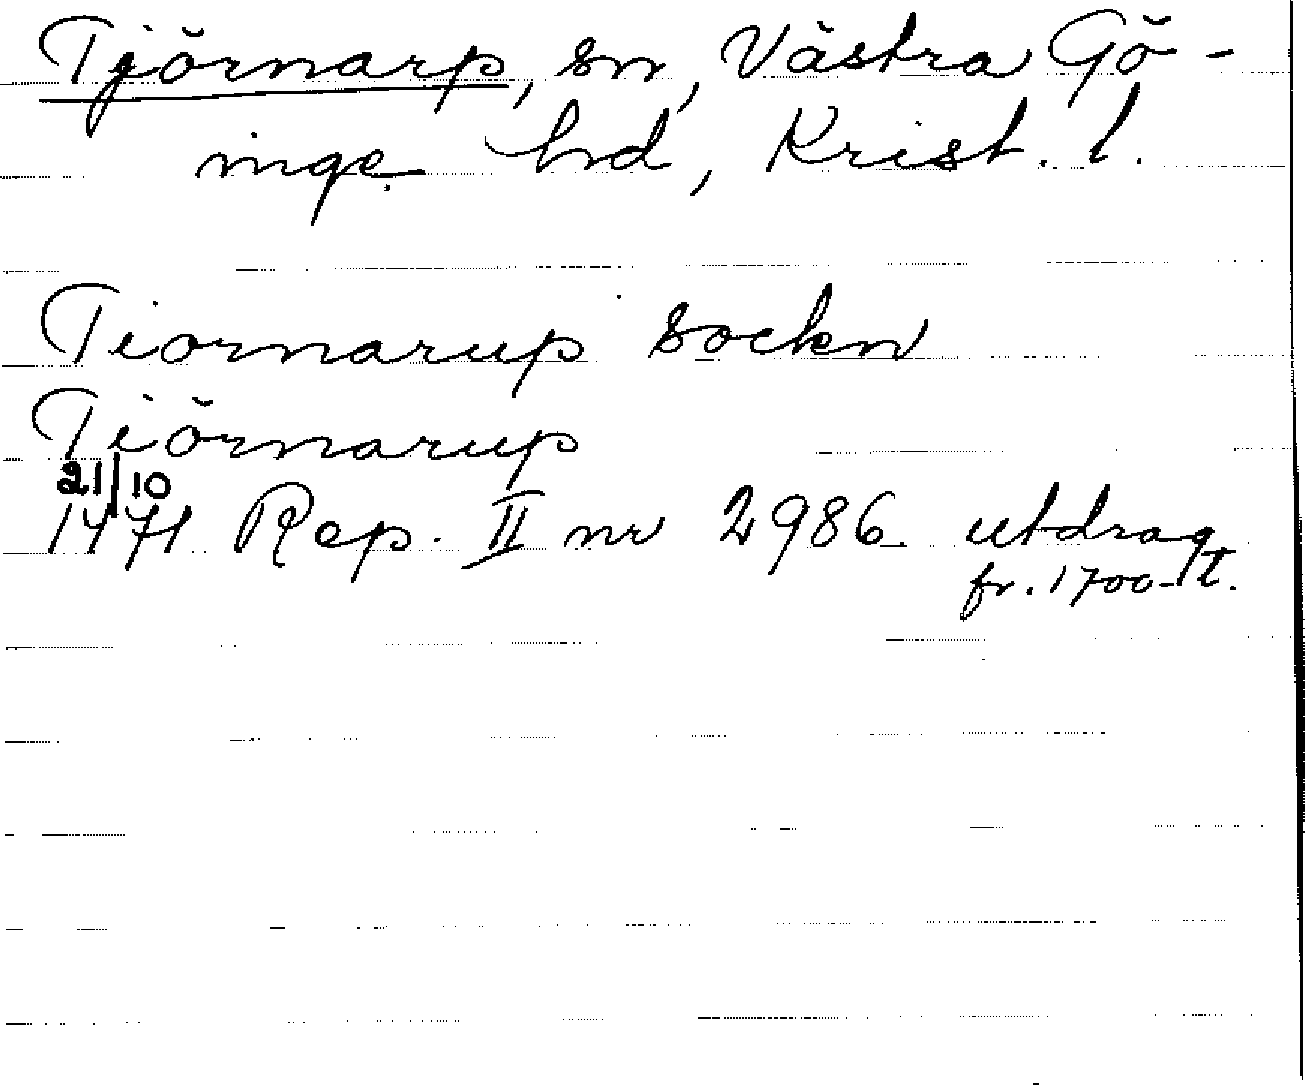 Tjörnarp, sn, Västra Gö-
inge hd, Krist. l.
Tiornarup sockn
Tiörnarup
21/10
1471 Rep. II nr 2986 utdrag
fr. 1700-t.